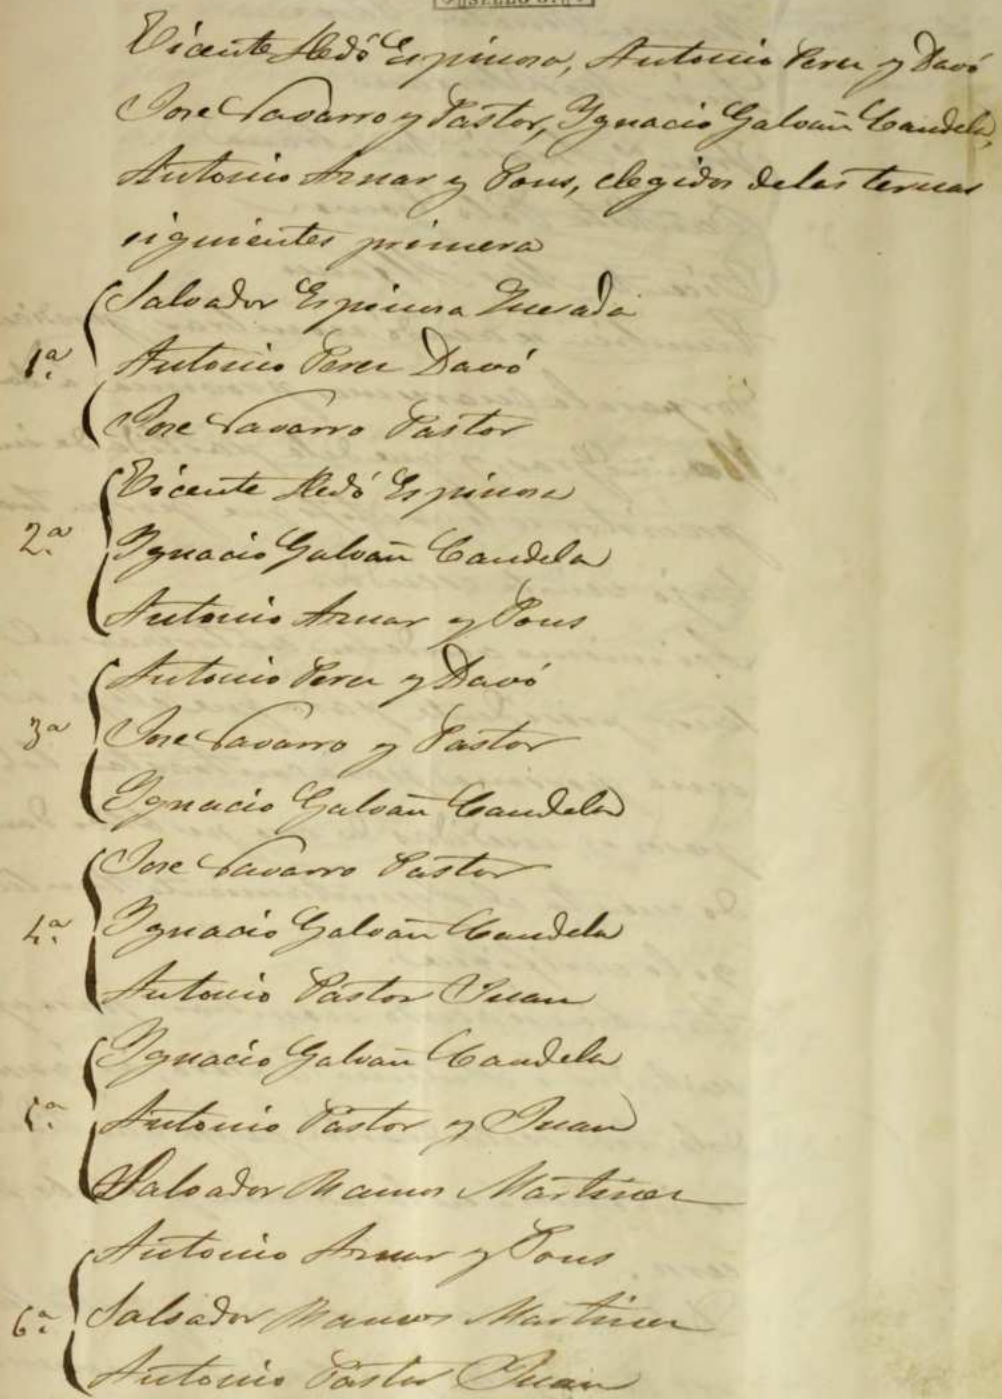 Vicente Aledó Espinosa, Antonio Perez y Davó
Jose Navarro y Pastor, Ygnacio Galvañ Candela,
Antonio Aznar y Pons, elegidos de las ternas
siguientes primera
1.ª Salvador Espinosa Quesada
Antonio Perez Davó
Jose Navarro Pastor
2.ª Vicente Aledó Espinosa
Ygnacio Galvañ Candela
Antonio Aznar y Pons
3ª Antonio Perez y Davó
Jose Navarro y Pastor
Ygnacio Galvañ Candela
4.ª Jose Navarro Pastor
Ygnacio Galvañ Candela
Antonio Pastor Juan
5.ª Ygnacio Galvañ Candela
Antonio Pastor y Juan
Salvador Mamos Martinez
6.ª Antonio Aznar y Pons
Salvador Mamos Martinez
Antonio Pastor Juan